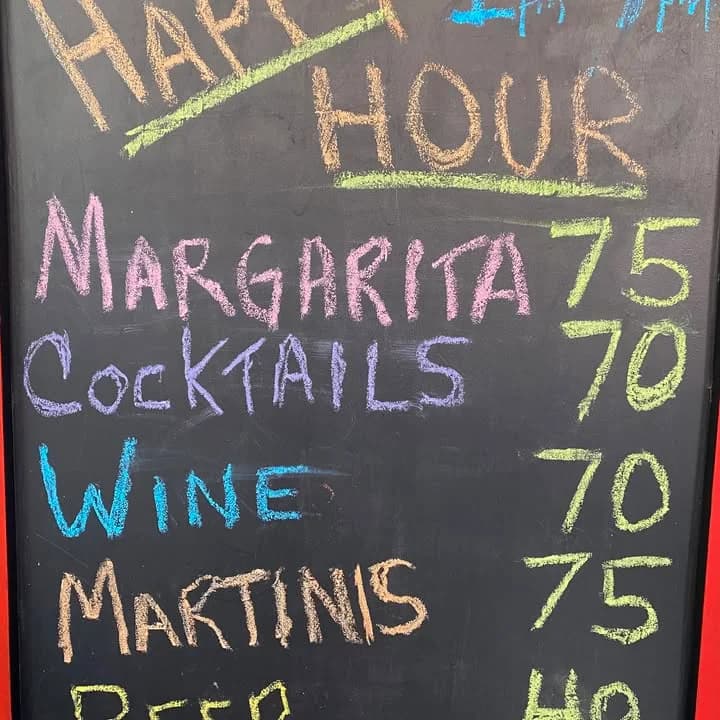 HAPPY
HOUR
MARGARITA 75
COCKTAILS 70
WINE 70
MARTINIS 75
BEER 40